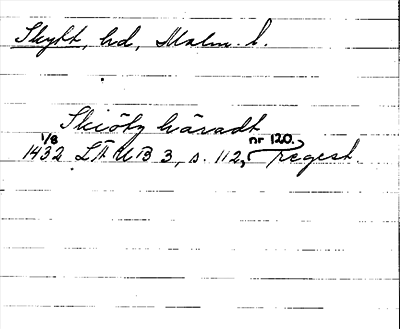 Skytt, hd, Malm. l.
Skiötz häradt
1/8 nr 120.
1432 LÄUB 3, s. 112, regest.